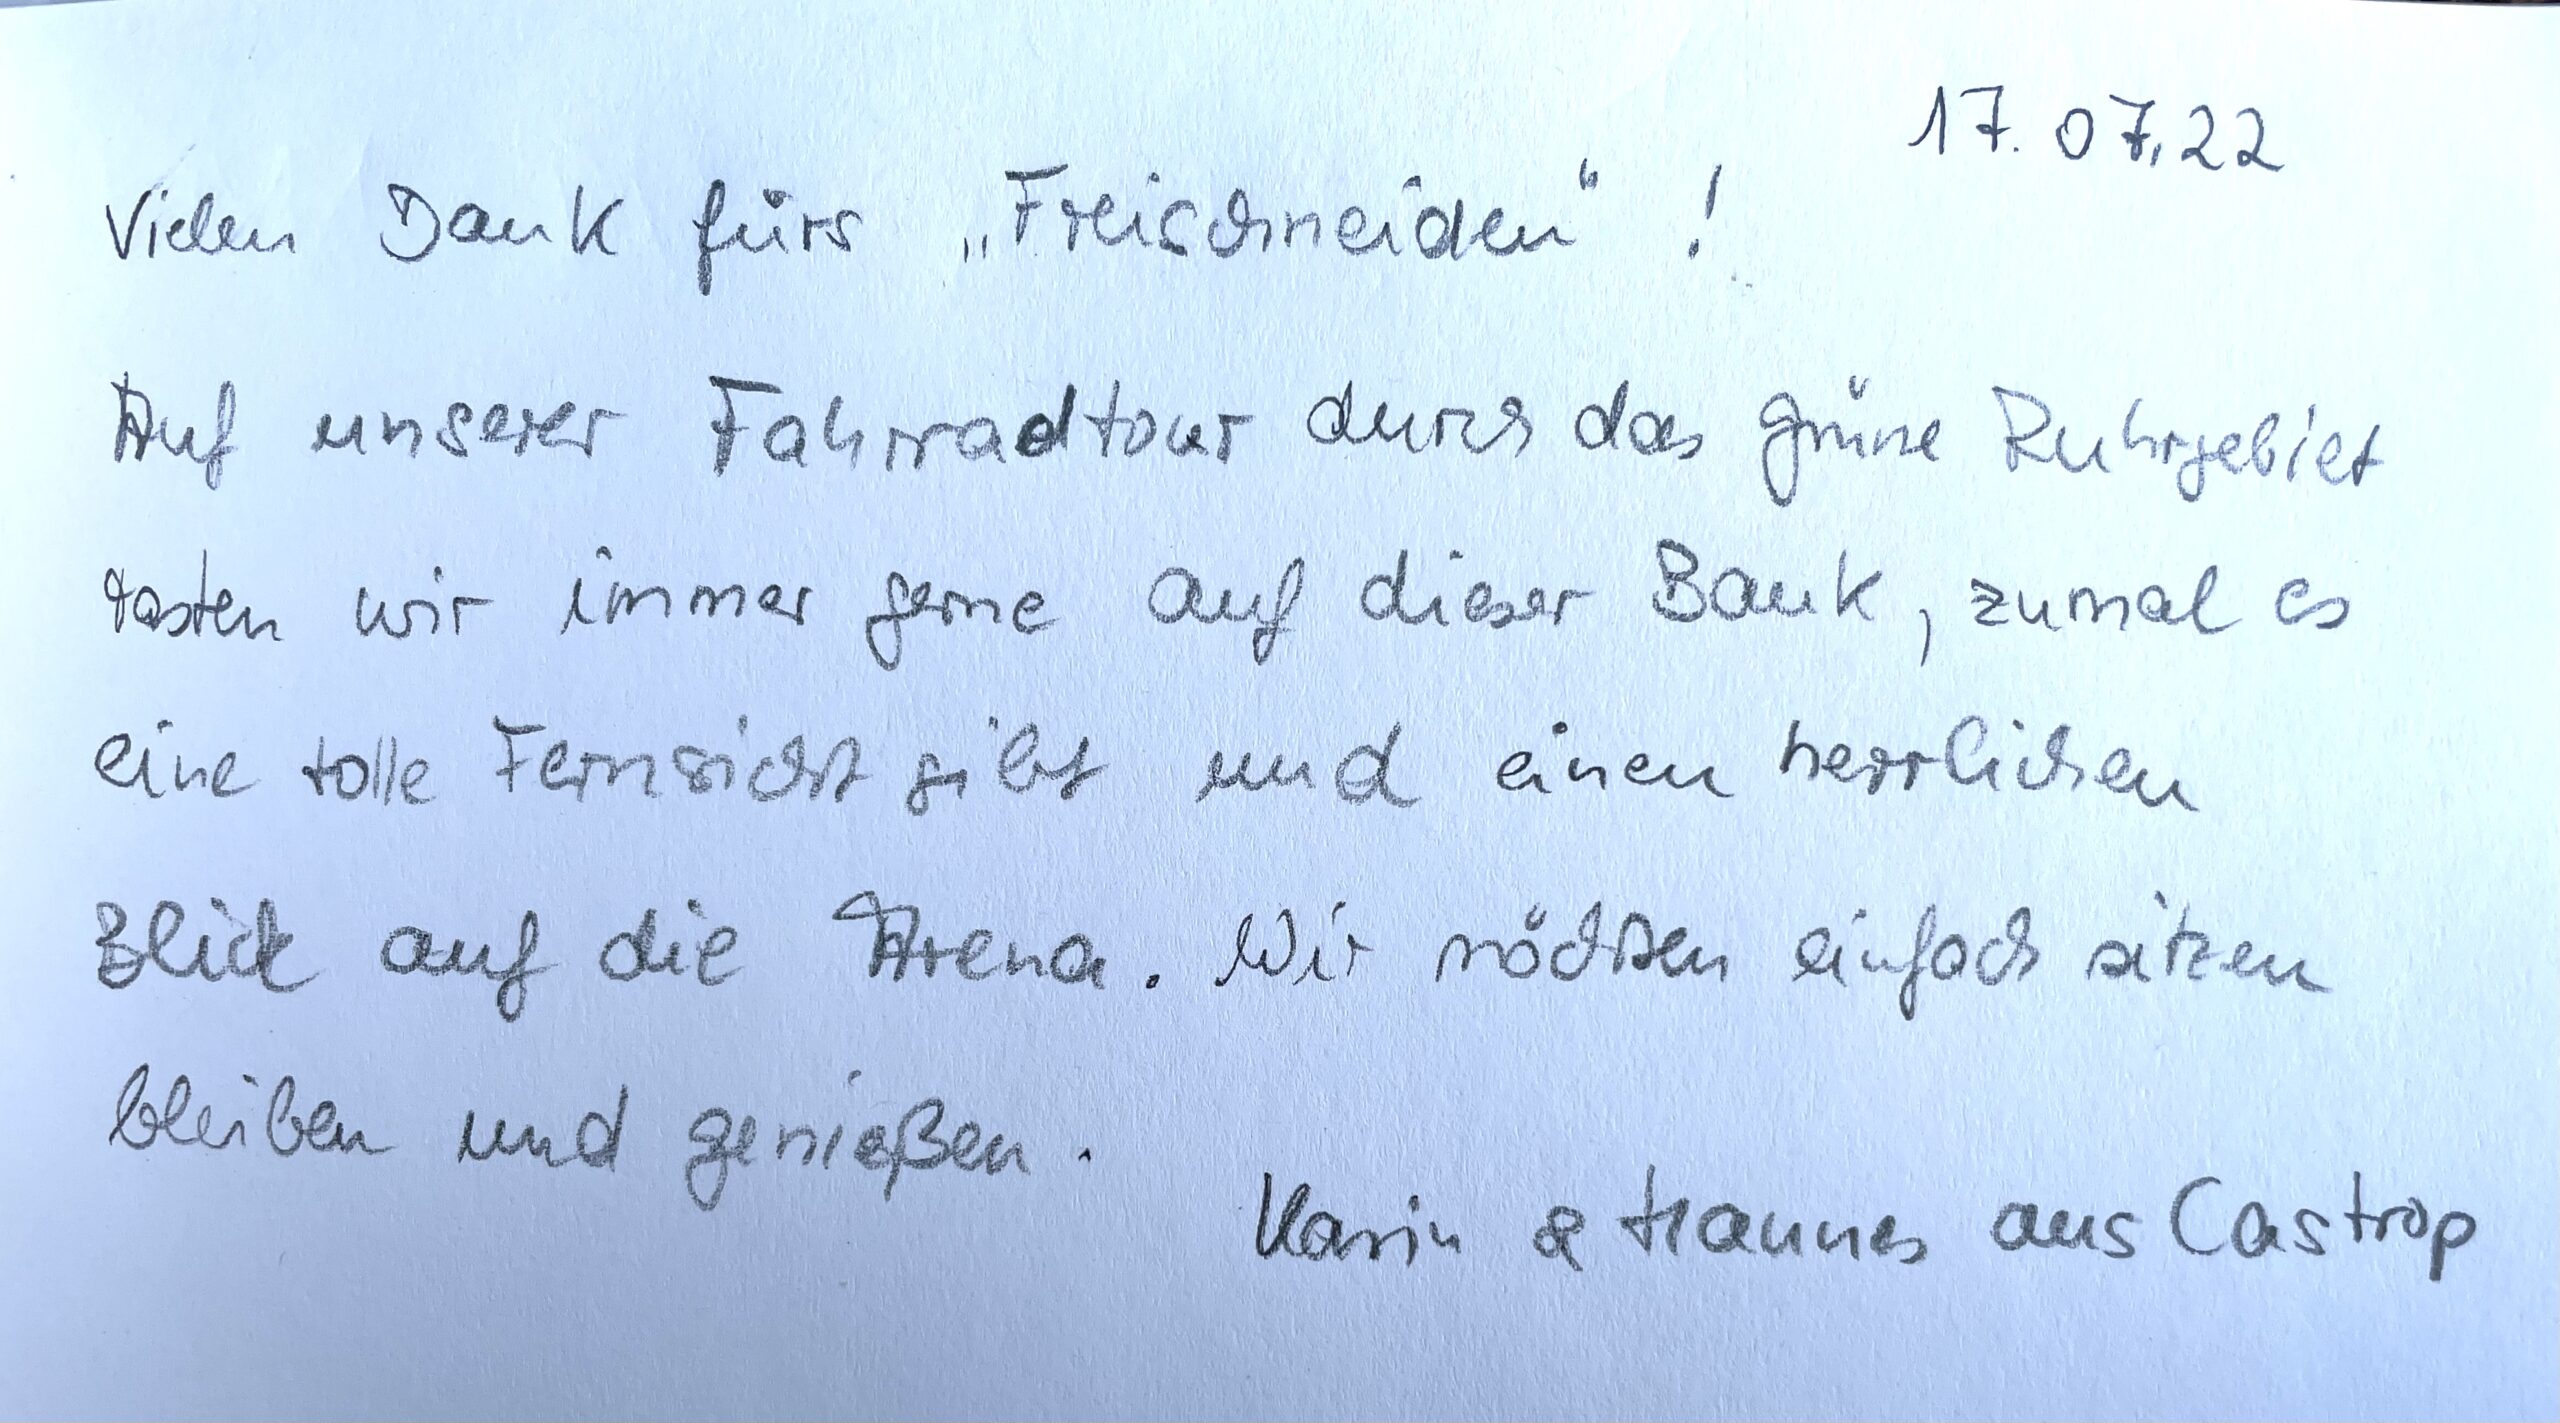 17.07.22
Vielen Dank fürs „Freischneiden“!
Auf unserer Fahrradtour durch das grüne Ruhrgebiet
rasten wir immer gerne auf dieser Bank, zumal es
eine tolle Fernsicht gibt und einen herrlichen
Blick auf die Arena. Wir möchten einfach sitzen
bleiben und genießen.
Karin & Hannes aus Castrop